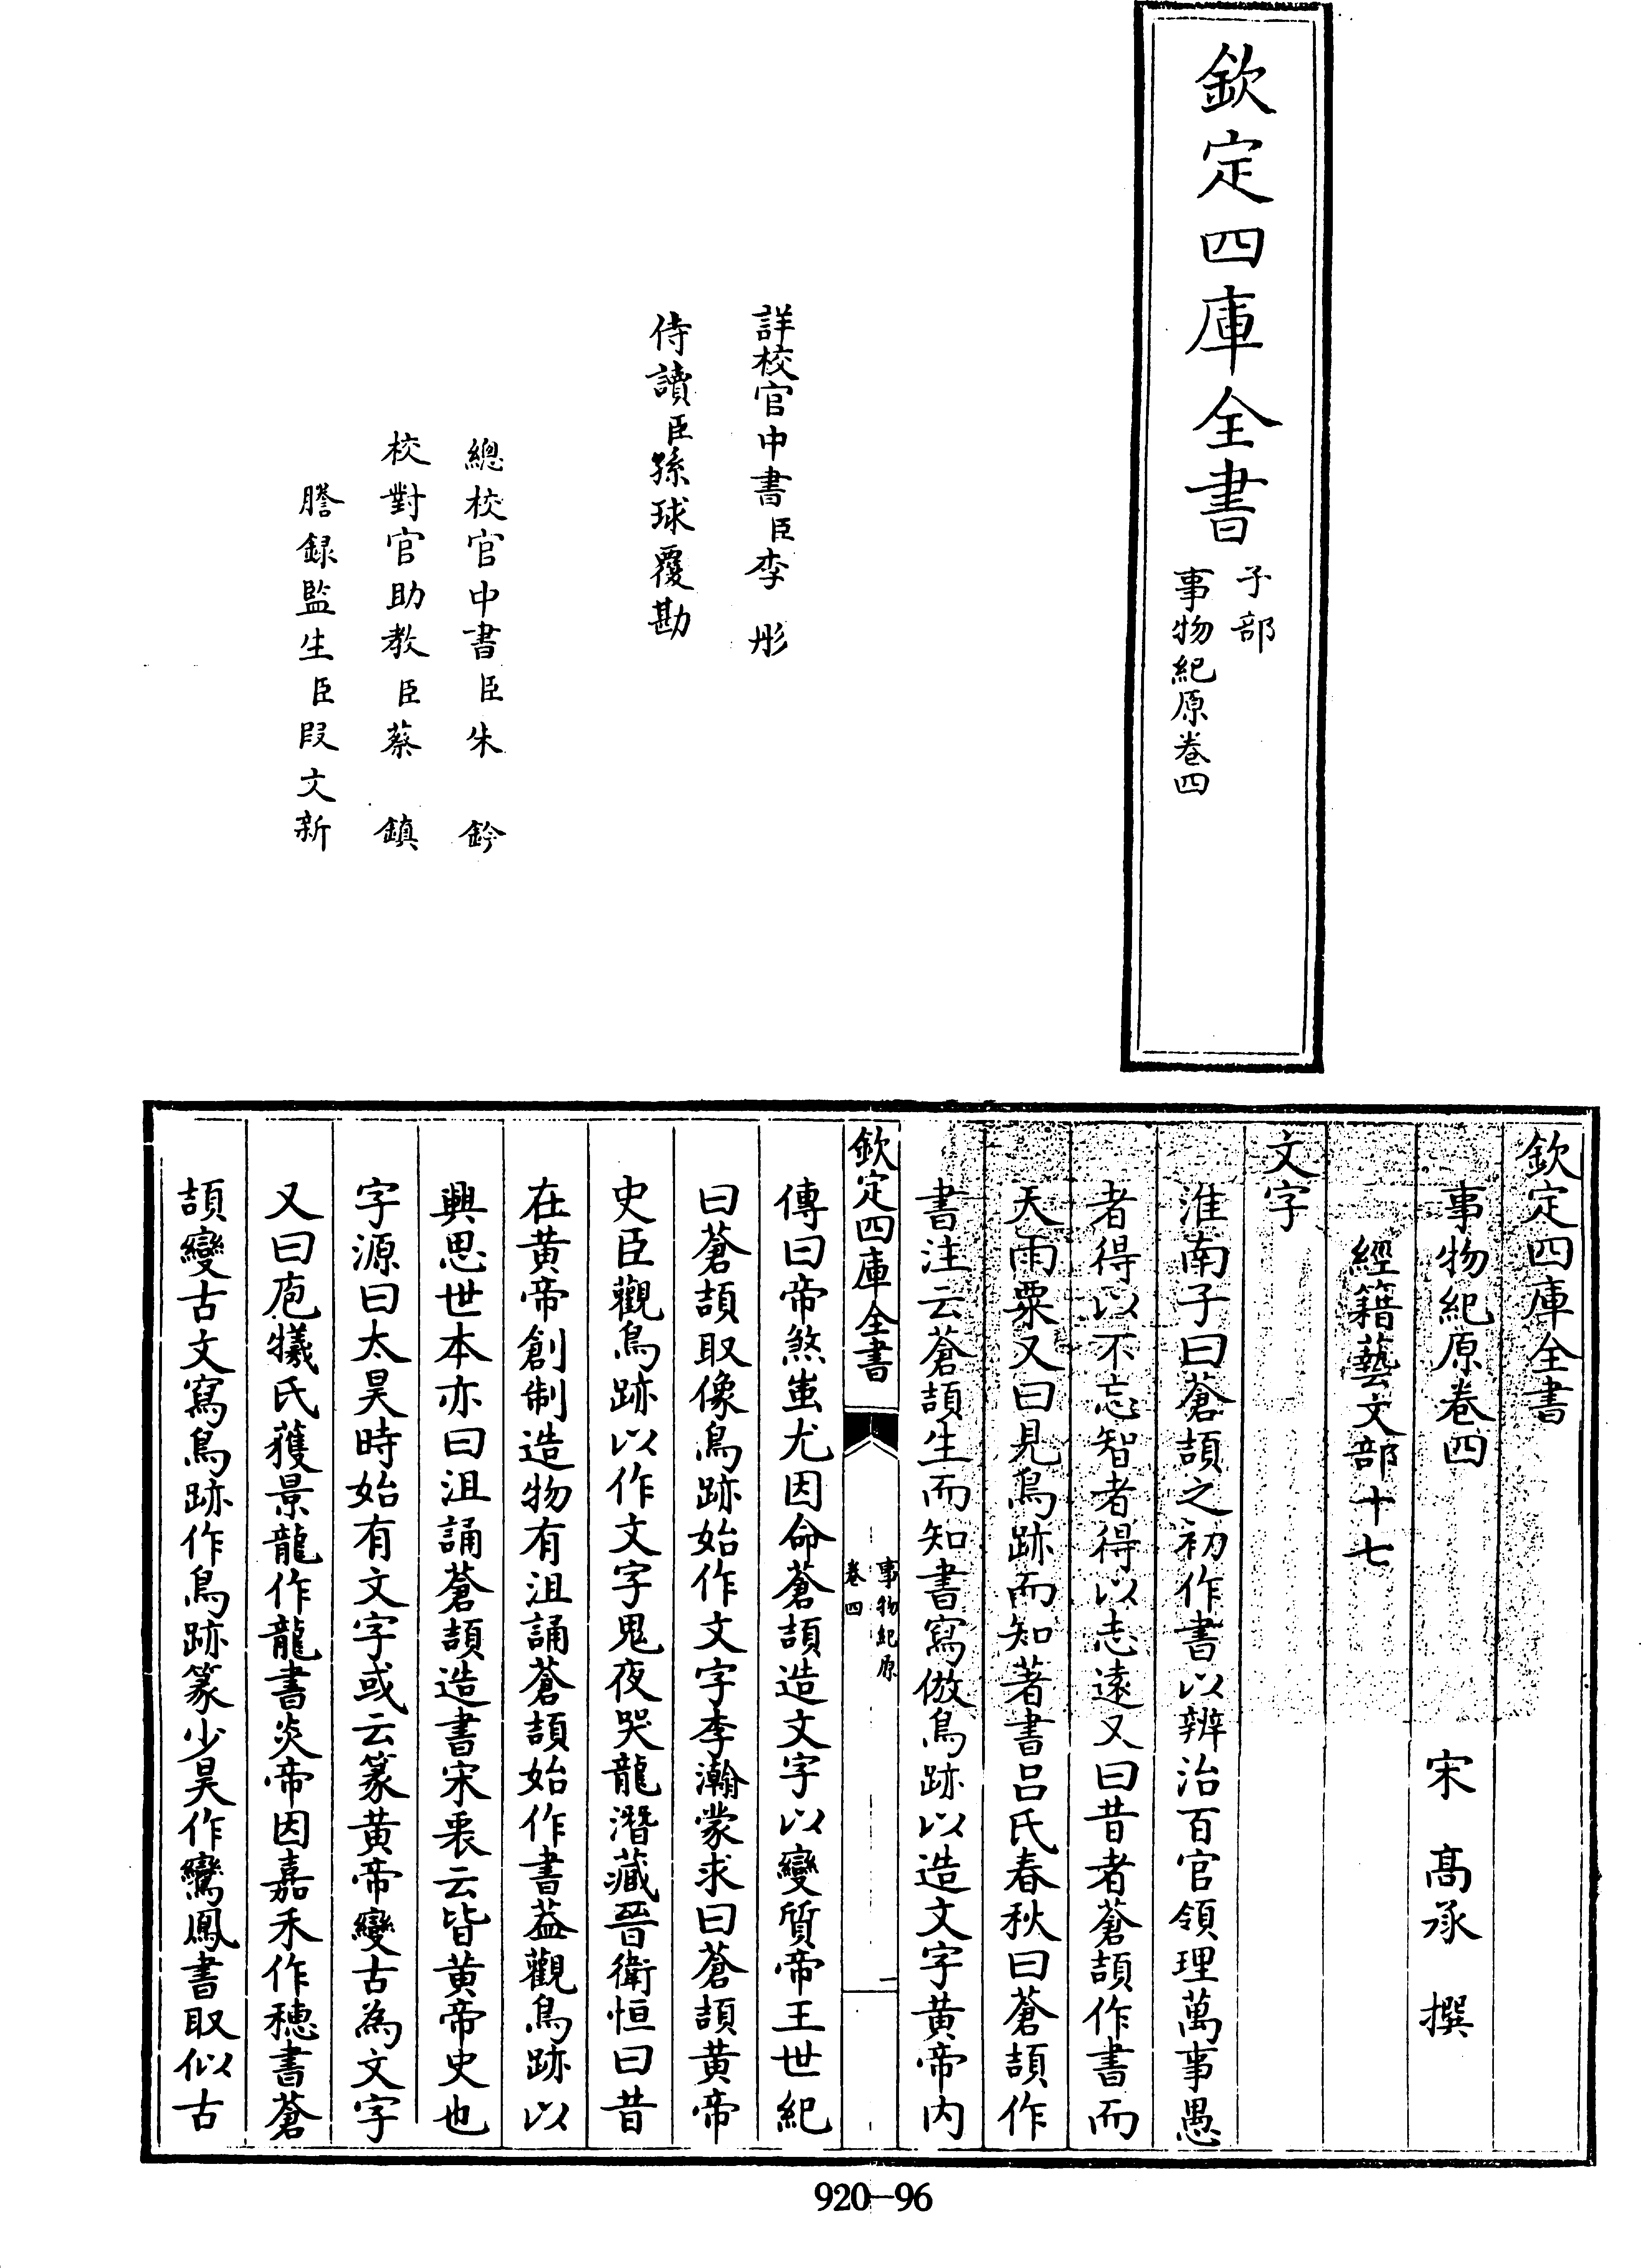 欽定四庫全書
子部
事物紀原卷四
詳校官中書臣李彤
侍讀臣孫球覆勘
總校官中書臣朱鈐
校對官助教臣蔡鎮
謄録監生臣段文新
欽定四庫全書
事物紀原卷四
宋 髙承 撰
經籍藝文部十七
文字
淮南子曰蒼頡之初作書以辨治百官領理萬事愚
者得以不忘智者得以志遠又曰昔者蒼頡作書而
天雨粟又曰見鳥跡而知著書吕氏春秋曰蒼頡作
書注云蒼頡生而知書寫倣鳥跡以造文字黄帝内
欽定四庫全書
事物紀原
卷四
一
傳曰帝煞蚩尤因命蒼頡造文字以變質帝王世紀
曰蒼頡取像鳥跡始作文字李瀚蒙求曰蒼頡黄帝
史臣觀鳥跡以作文字鬼夜哭龍潛藏晉衛恒曰昔
在黄帝創制造物有沮誦蒼頡始作書葢觀鳥跡以
興思世本亦曰沮誦蒼頡造書宋衷云皆黄帝史也
字源曰太昊時始有文字或云篆黄帝變古為文字
又曰庖犧氏獲景龍作龍書炎帝因嘉禾作穗書蒼
頡變古文寫鳥跡作鳥跡篆少昊作鸞鳳書取似古
920-96